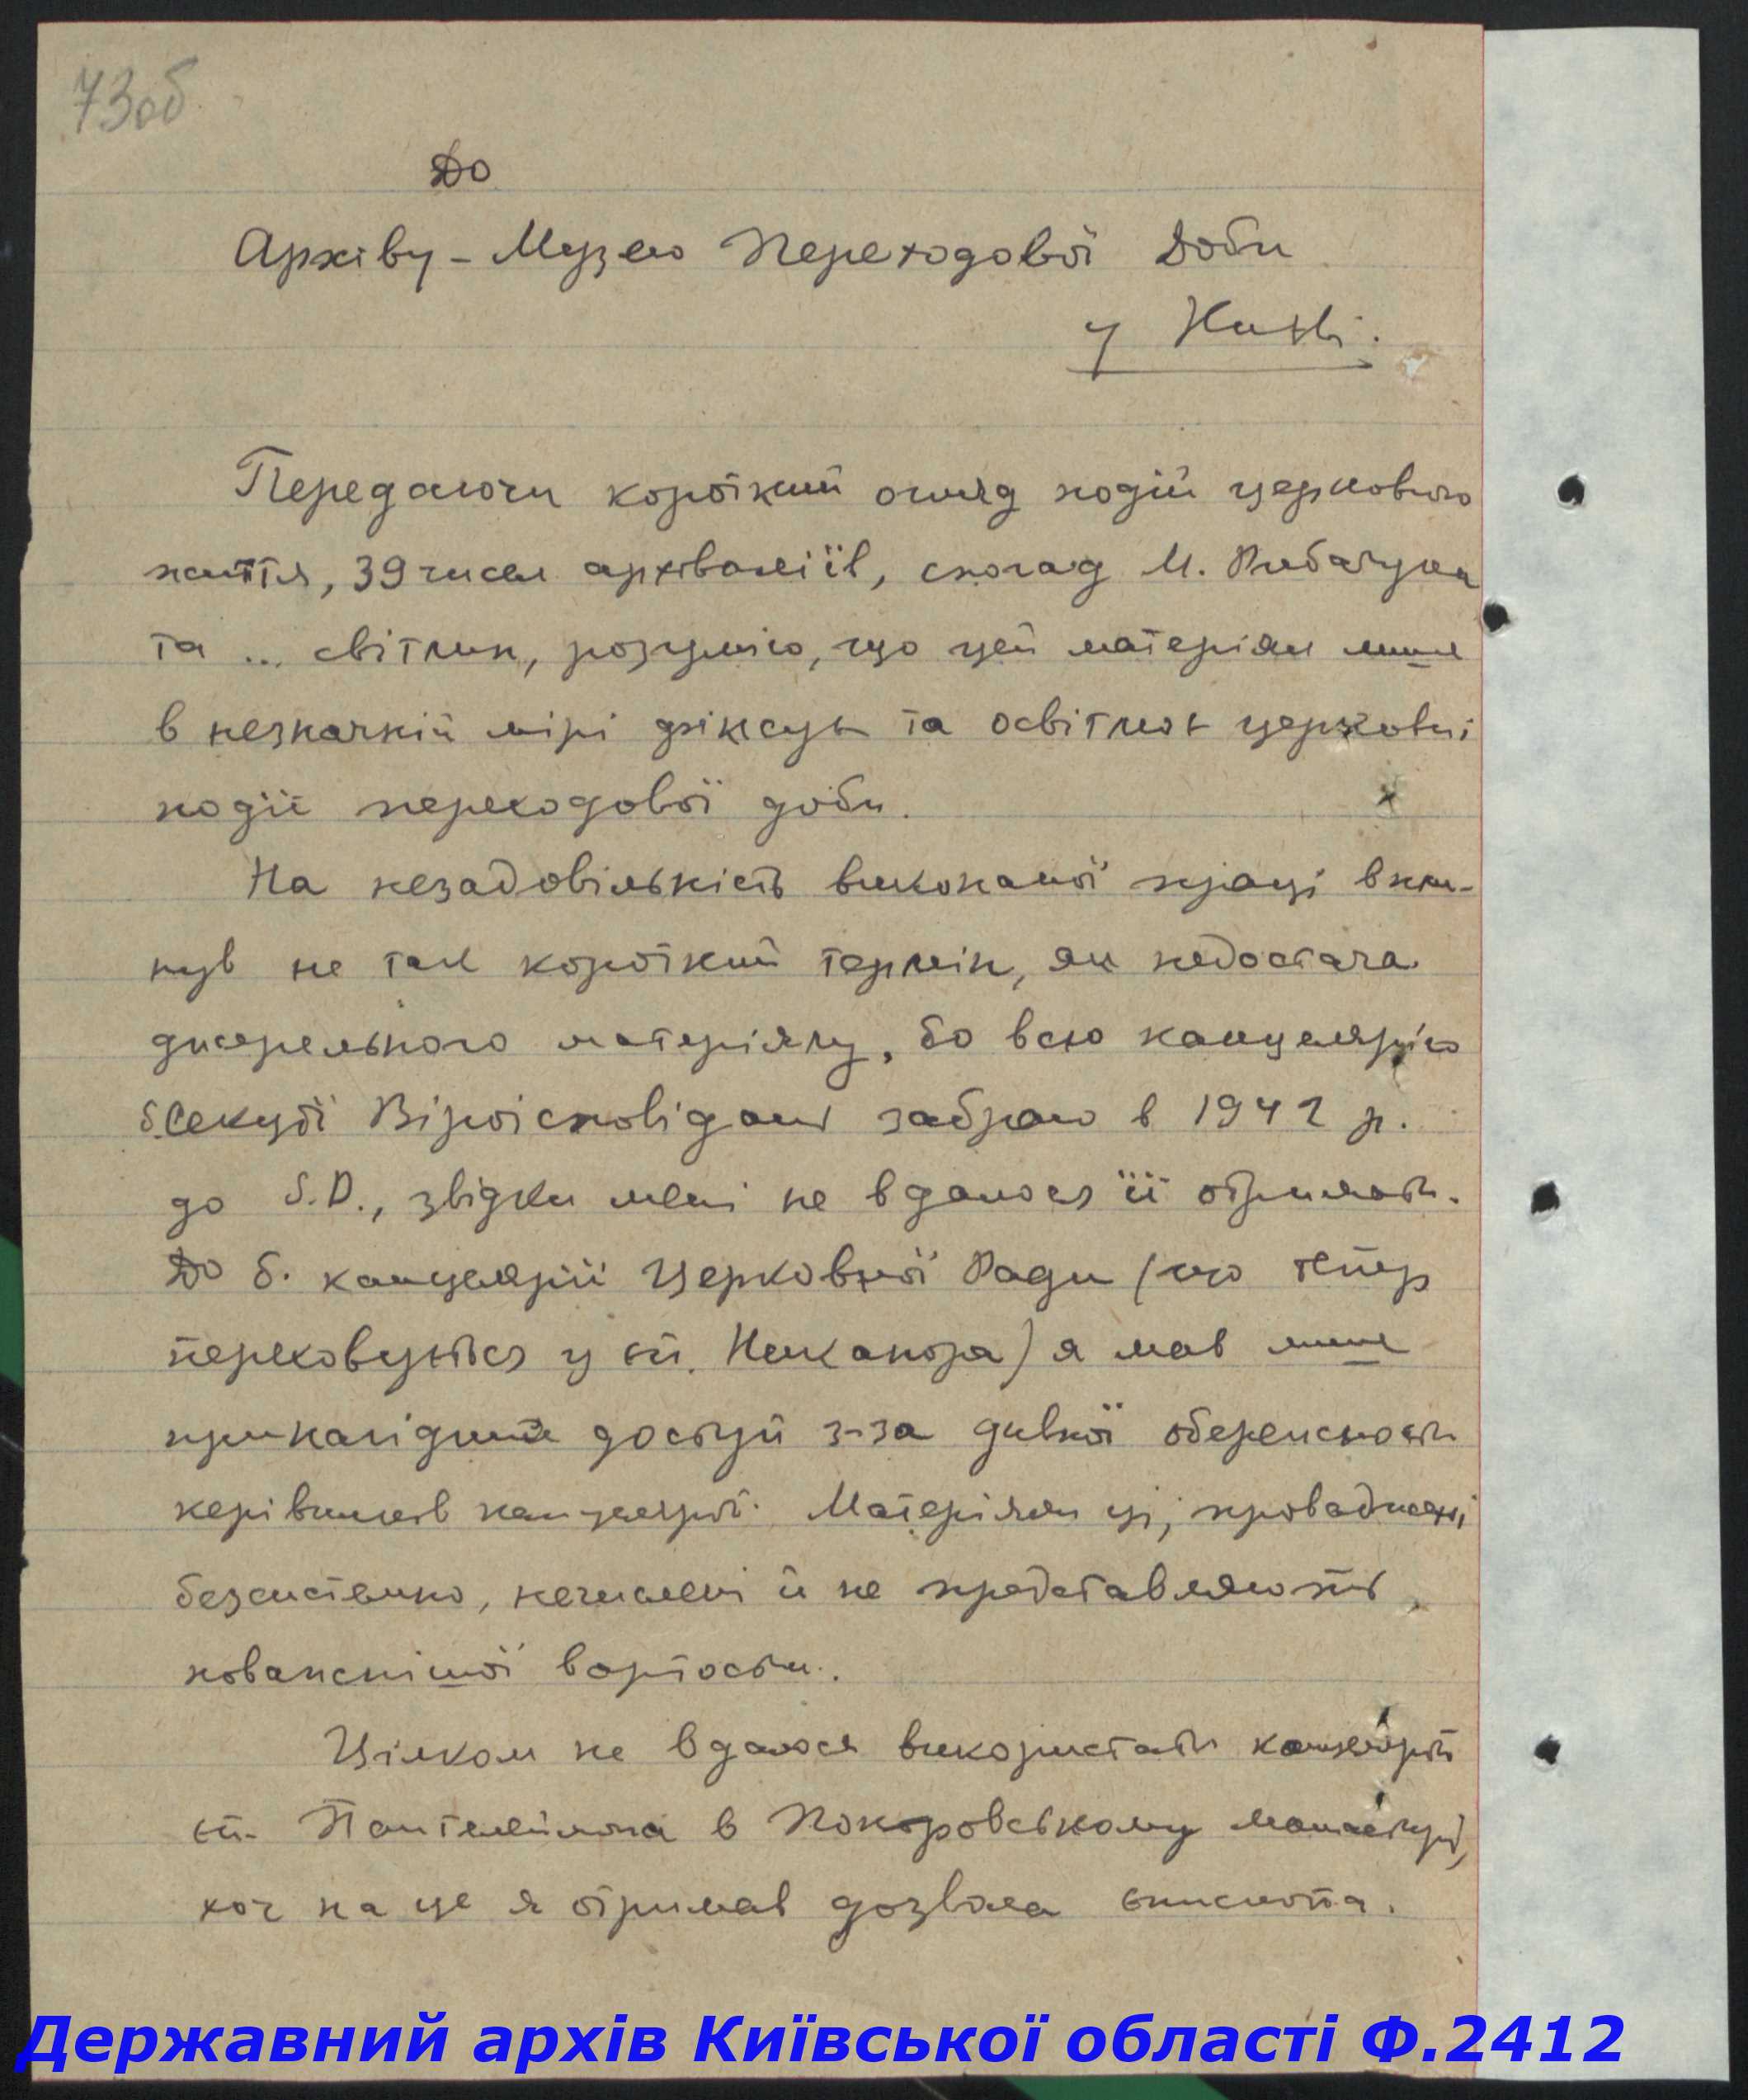 73об
До
Архіву - Музею Переходової Доби
у Києві.
Передаючи короткий огляд подій церковного
життя, 39 чисел архіваліїв, спогад М. Рибачука
та ... світлин, розумію, що цей матеріял лише
в незначній мірі фіксує та освітлює церковні
події переходової доби.
На незадовільність виконаної праці впли-
нув не так короткий термін, як недостача
джерельного матеріялу, бо всю канцелярію
б. Секції Віроісповідань забрано в 1942 р.
до S.D., звідки мені не вдалося її отримати.
До б. канцелярії Церковної Ради (що тепер
переховується у єп. Никанора) я мав лише
принагідний доступ з-за дивної обережности
керівників канцелярії. Матеріяли ці, проваджені
безсистемно, нечислені й не представляють
поважнішої вартости.
Цілком не вдалося використати канцелярії
єп. Пантелеймона в Покровському манастирі,
хоч на це я отримав дозвола єпископа.
Державний архів Київської області Ф.2412